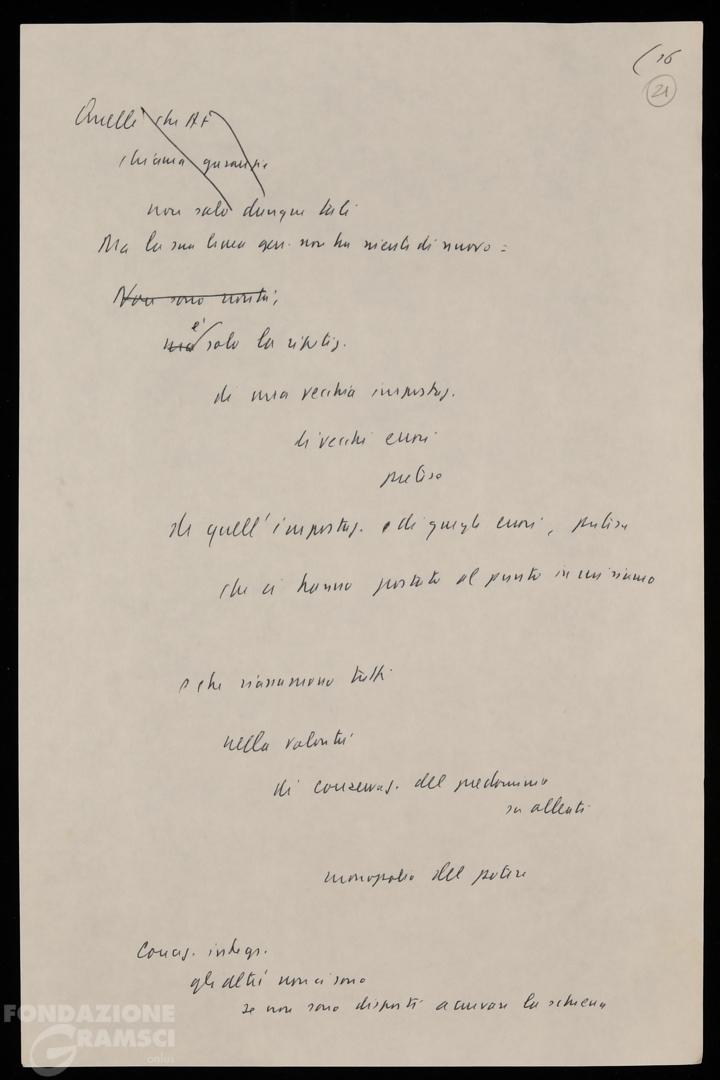 (16
21
Quelle che AF
chiama garanzie
non solo dunque tali
Ma la sua linea gen. non ha niente di nuovo:
Non sono novità;
ma è solo la ripetiz.
di una vecchia impostaz.
di vecchi errori
precisa
di quell'impostaz. e di quegli errori, precisa
che ci hanno portato al punto in cui siamo
e che riassumono tutti
nella volontà
di conservaz. del predominio
su alleati
monopolio del potere
Concez. integr.
gli altri non ci sono
se non sono disposti a curvare la schiena
FONDAZIONE
GRAMSCI
onlus